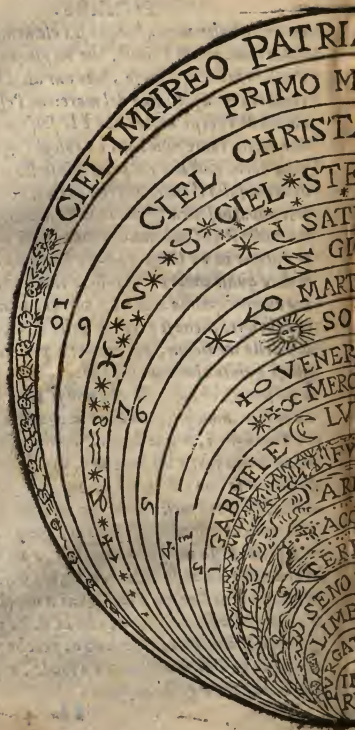 CIEL IMPIREO PATRIA
PRIMO M
CIEL CHRIST
CIEL STE
SAT
GI
MART
SO
VENER
MERC
GABRIELE LV
FV
ARI
ACQ
TERR
SENO
LIMB
PVRGA
IN
10
9
7
6
5
4
1